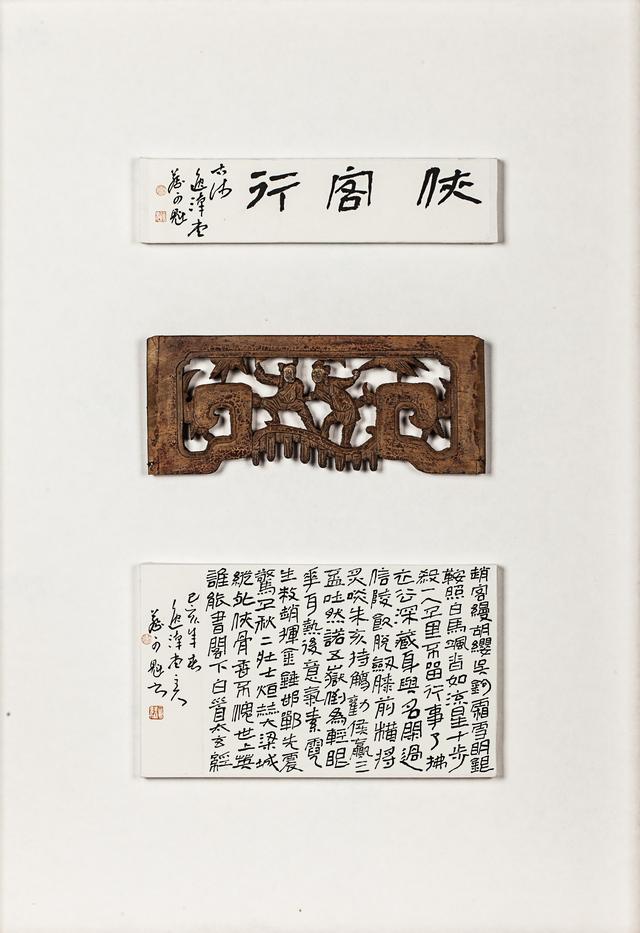 俠客行
趙客縵胡纓吳鉤霜雪明銀
鞍照白馬颯沓如流星十步
殺一人千里不留行事了拂
衣去深藏身與名閒過
信陵飲脫劍膝前橫將
炙啖朱亥持觴勸侯嬴三
盃吐然諾五嶽倒為輕眼
華耳熱後意氣素霓
生救趙揮金錘邯鄲先震
驚千秋二壯士烜赫大梁城
縱死俠骨香不愧世上英
誰能書閣下白首太玄經
己亥年春